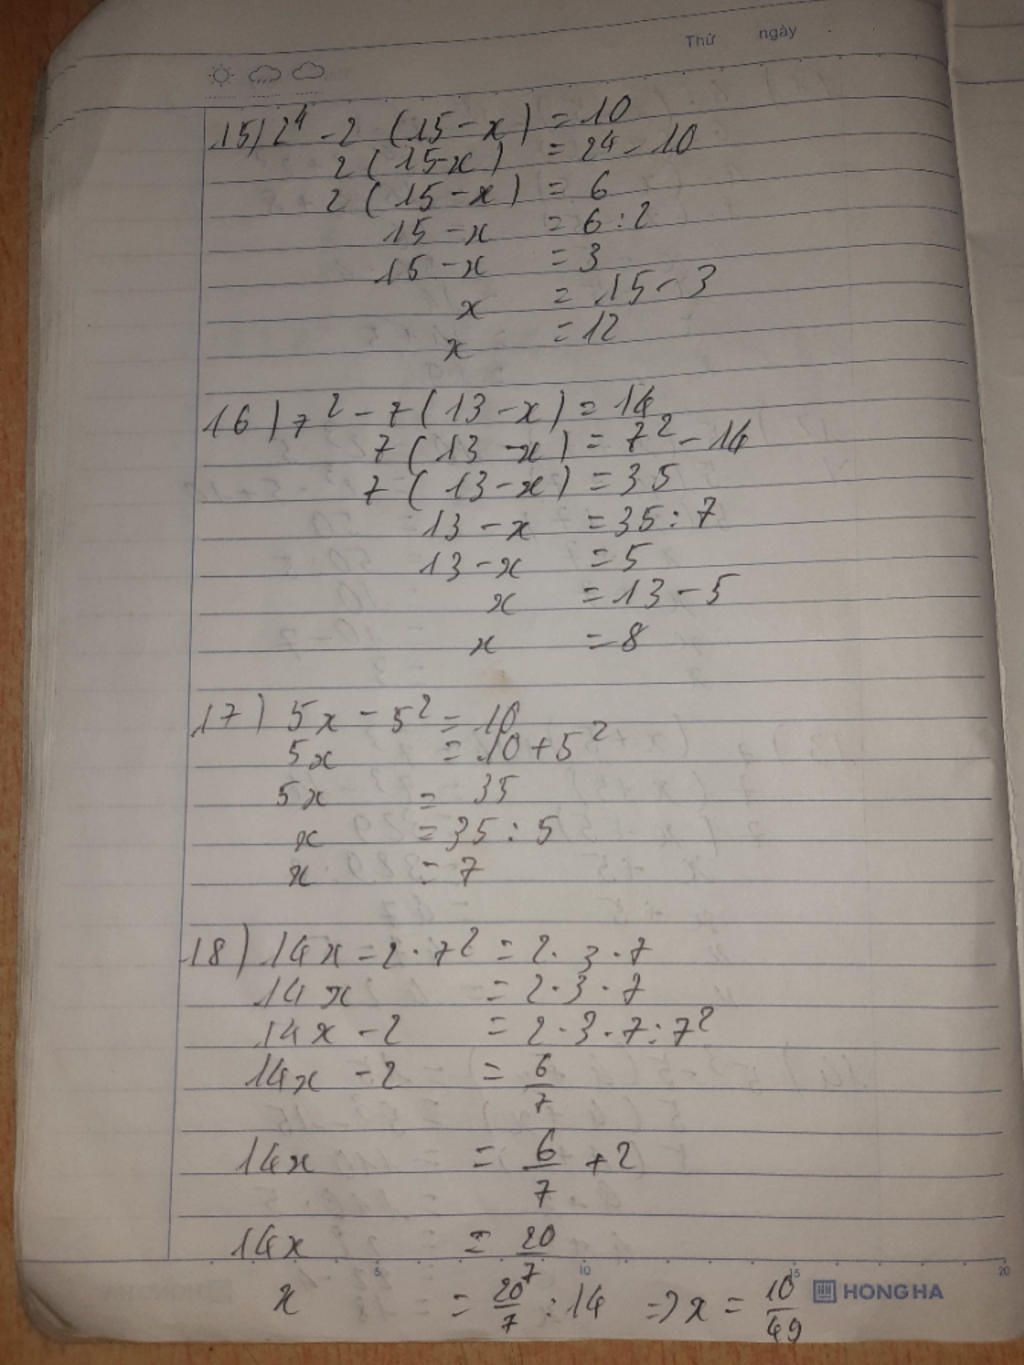 Thứ ngày
15) 2⁴ - 2 (15 - x) = 10
2 (15-x) = 24 - 10
2 (15 - x) = 6
15 - x = 6 : 2
15 - x = 3
x = 15 - 3
x = 12
16) 7² - 7 (13 - x) = 14
7 (13 - x) = 7² - 14
7 (13 - x) = 35
13 - x = 35 : 7
13 - x = 5
x = 13 - 5
x = 8
17) 5x - 5² = 10
5x = 10 + 5²
5x = 35
x = 35 : 5
x = 7
18) 14x - 2 · 7² = 2 · 3 · 7
14x = 2 · 3 · 7
14x - 2 = 2 · 3 · 7 : 7²
14x - 2 = 6/7
14x = 6/7 + 2
14x = 20/7
x = 20/7 : 14 => x = 10/49
5 10 15 20
HONG HA